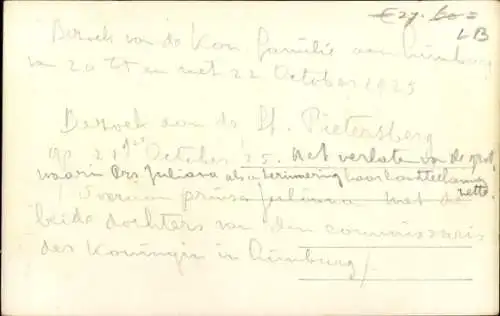 € 27.60 =
LB
Bezoek van de Kon. familie aan Limburg
van 20 tot en met 22 October 1925
Bezoek aan de St. Pietersberg
op 21sten October '25. Het verlaten van de grot
waarin Prs Juliana als herinnering haar handteekening
zette.
Vooraan prinses Juliana met de
beide dochters van den commissaris
der Koningin in Limburg